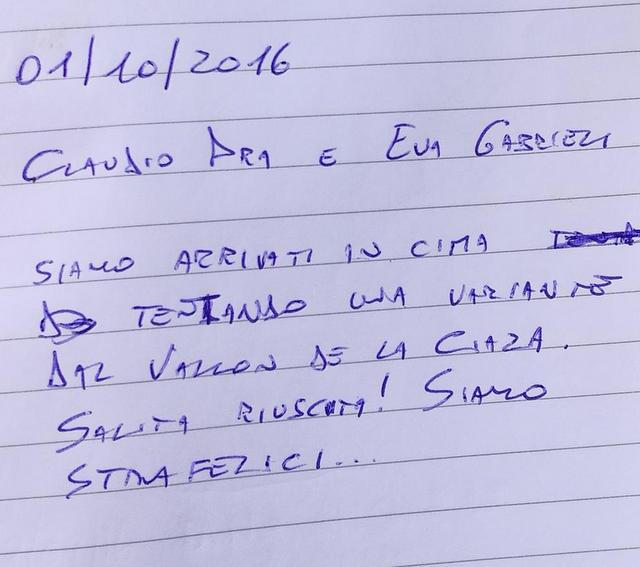 01/10/2016
CLAUDIO DRA E EVA GABRIELI
SIAMO ARRIVATI IN CIMA
TENTANDO UNA VARIANTE
DAL VALLON DE LA CIAZA.
SALITA RIUSCITA! SIAMO
STRAFELICI...